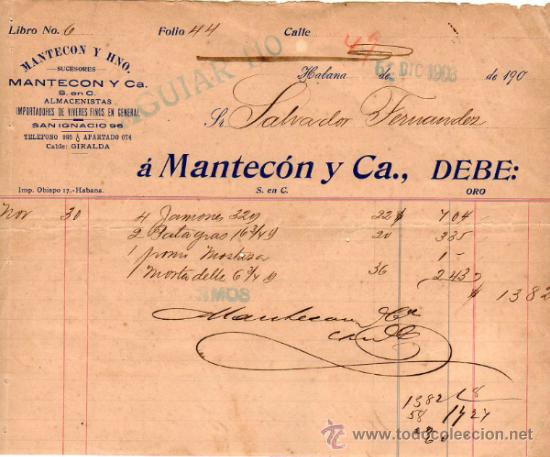 Libro No. 6 Folio 44 Calle
MANTECON Y HNO.
SUCESORES
MANTECON Y Ca.
S. en C.
ALMACENISTAS
IMPORTADORES DE VIVERES FINOS EN GENERAL
SAN IGNACIO 96
TELEFONO APARTADO
Cable: GIRALDA
AGUIAR 110
49
Habana de DIC 1903 de 190
Sr. Salvador Fernandez
á Mantecón y Ca., DEBE:
Imp. Obispo 17.-Habana. S. en C. ORO
Nov 30 4 Jamones 32 22 $ 704
2 Patagras 16 20 335
1 pomo Mostaza 1-
1 Mortadella 6 36 243
$ 1382
Mantecon y Ca
1382
58 1424